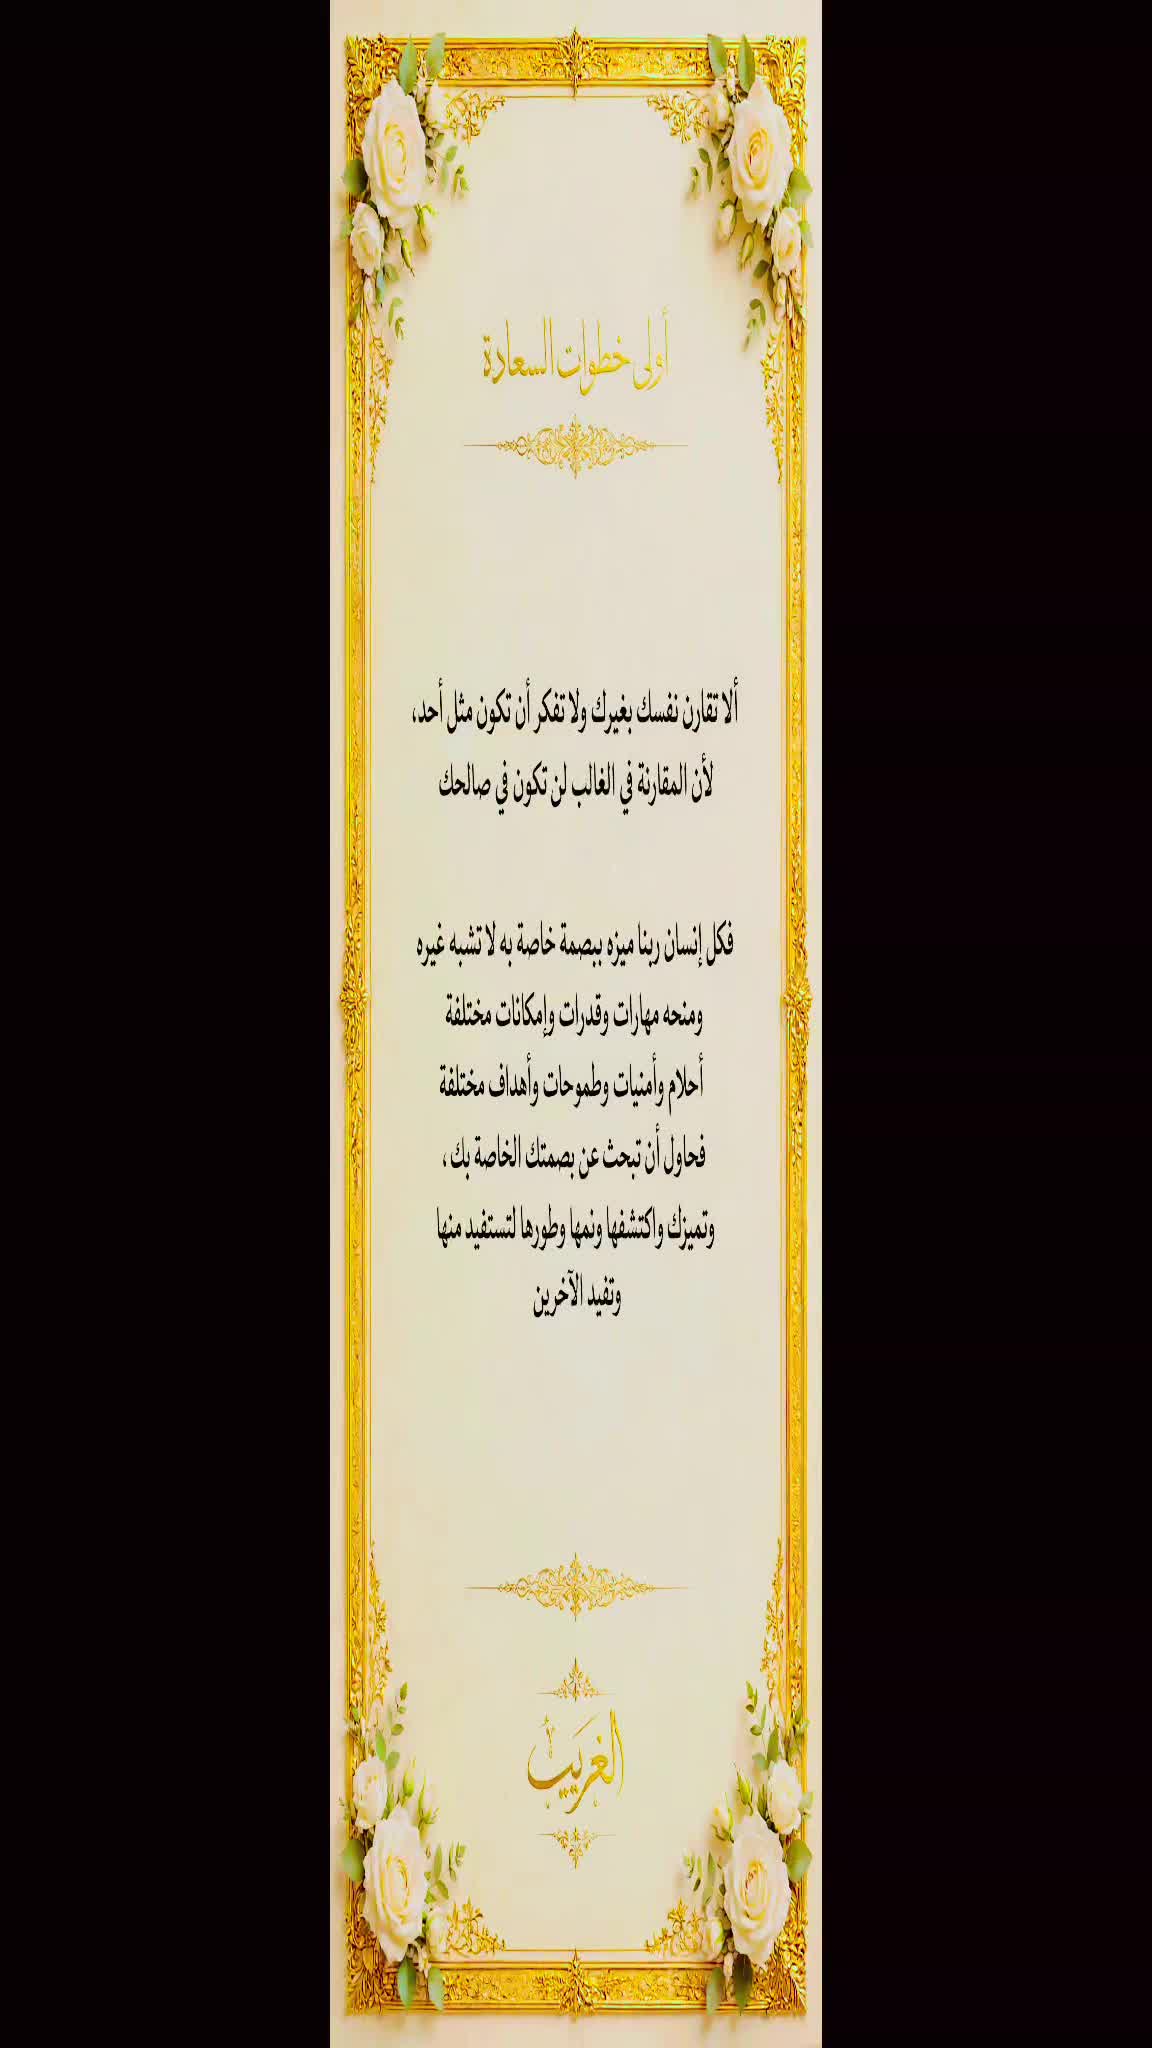 أولى خطوات السعادة
ألا تقارن نفسك بغيرك ولا تفكر أن تكون مثل أحد،
لأن المقارنة في الغالب لن تكون في صالحك
فكل إنسان ربنا ميزه ببصمة خاصة به لا تشبه غيره
ومنحه مهارات وقدرات وإمكانات مختلفة
أحلام وأمنيات وطموحات وأهداف مختلفة
فحاول أن تبحث عن بصمتك الخاصة بك ،
وتميزك واكتشفها ونمها وطورها لتستفيد منها
وتفيد الآخرين
الغريب